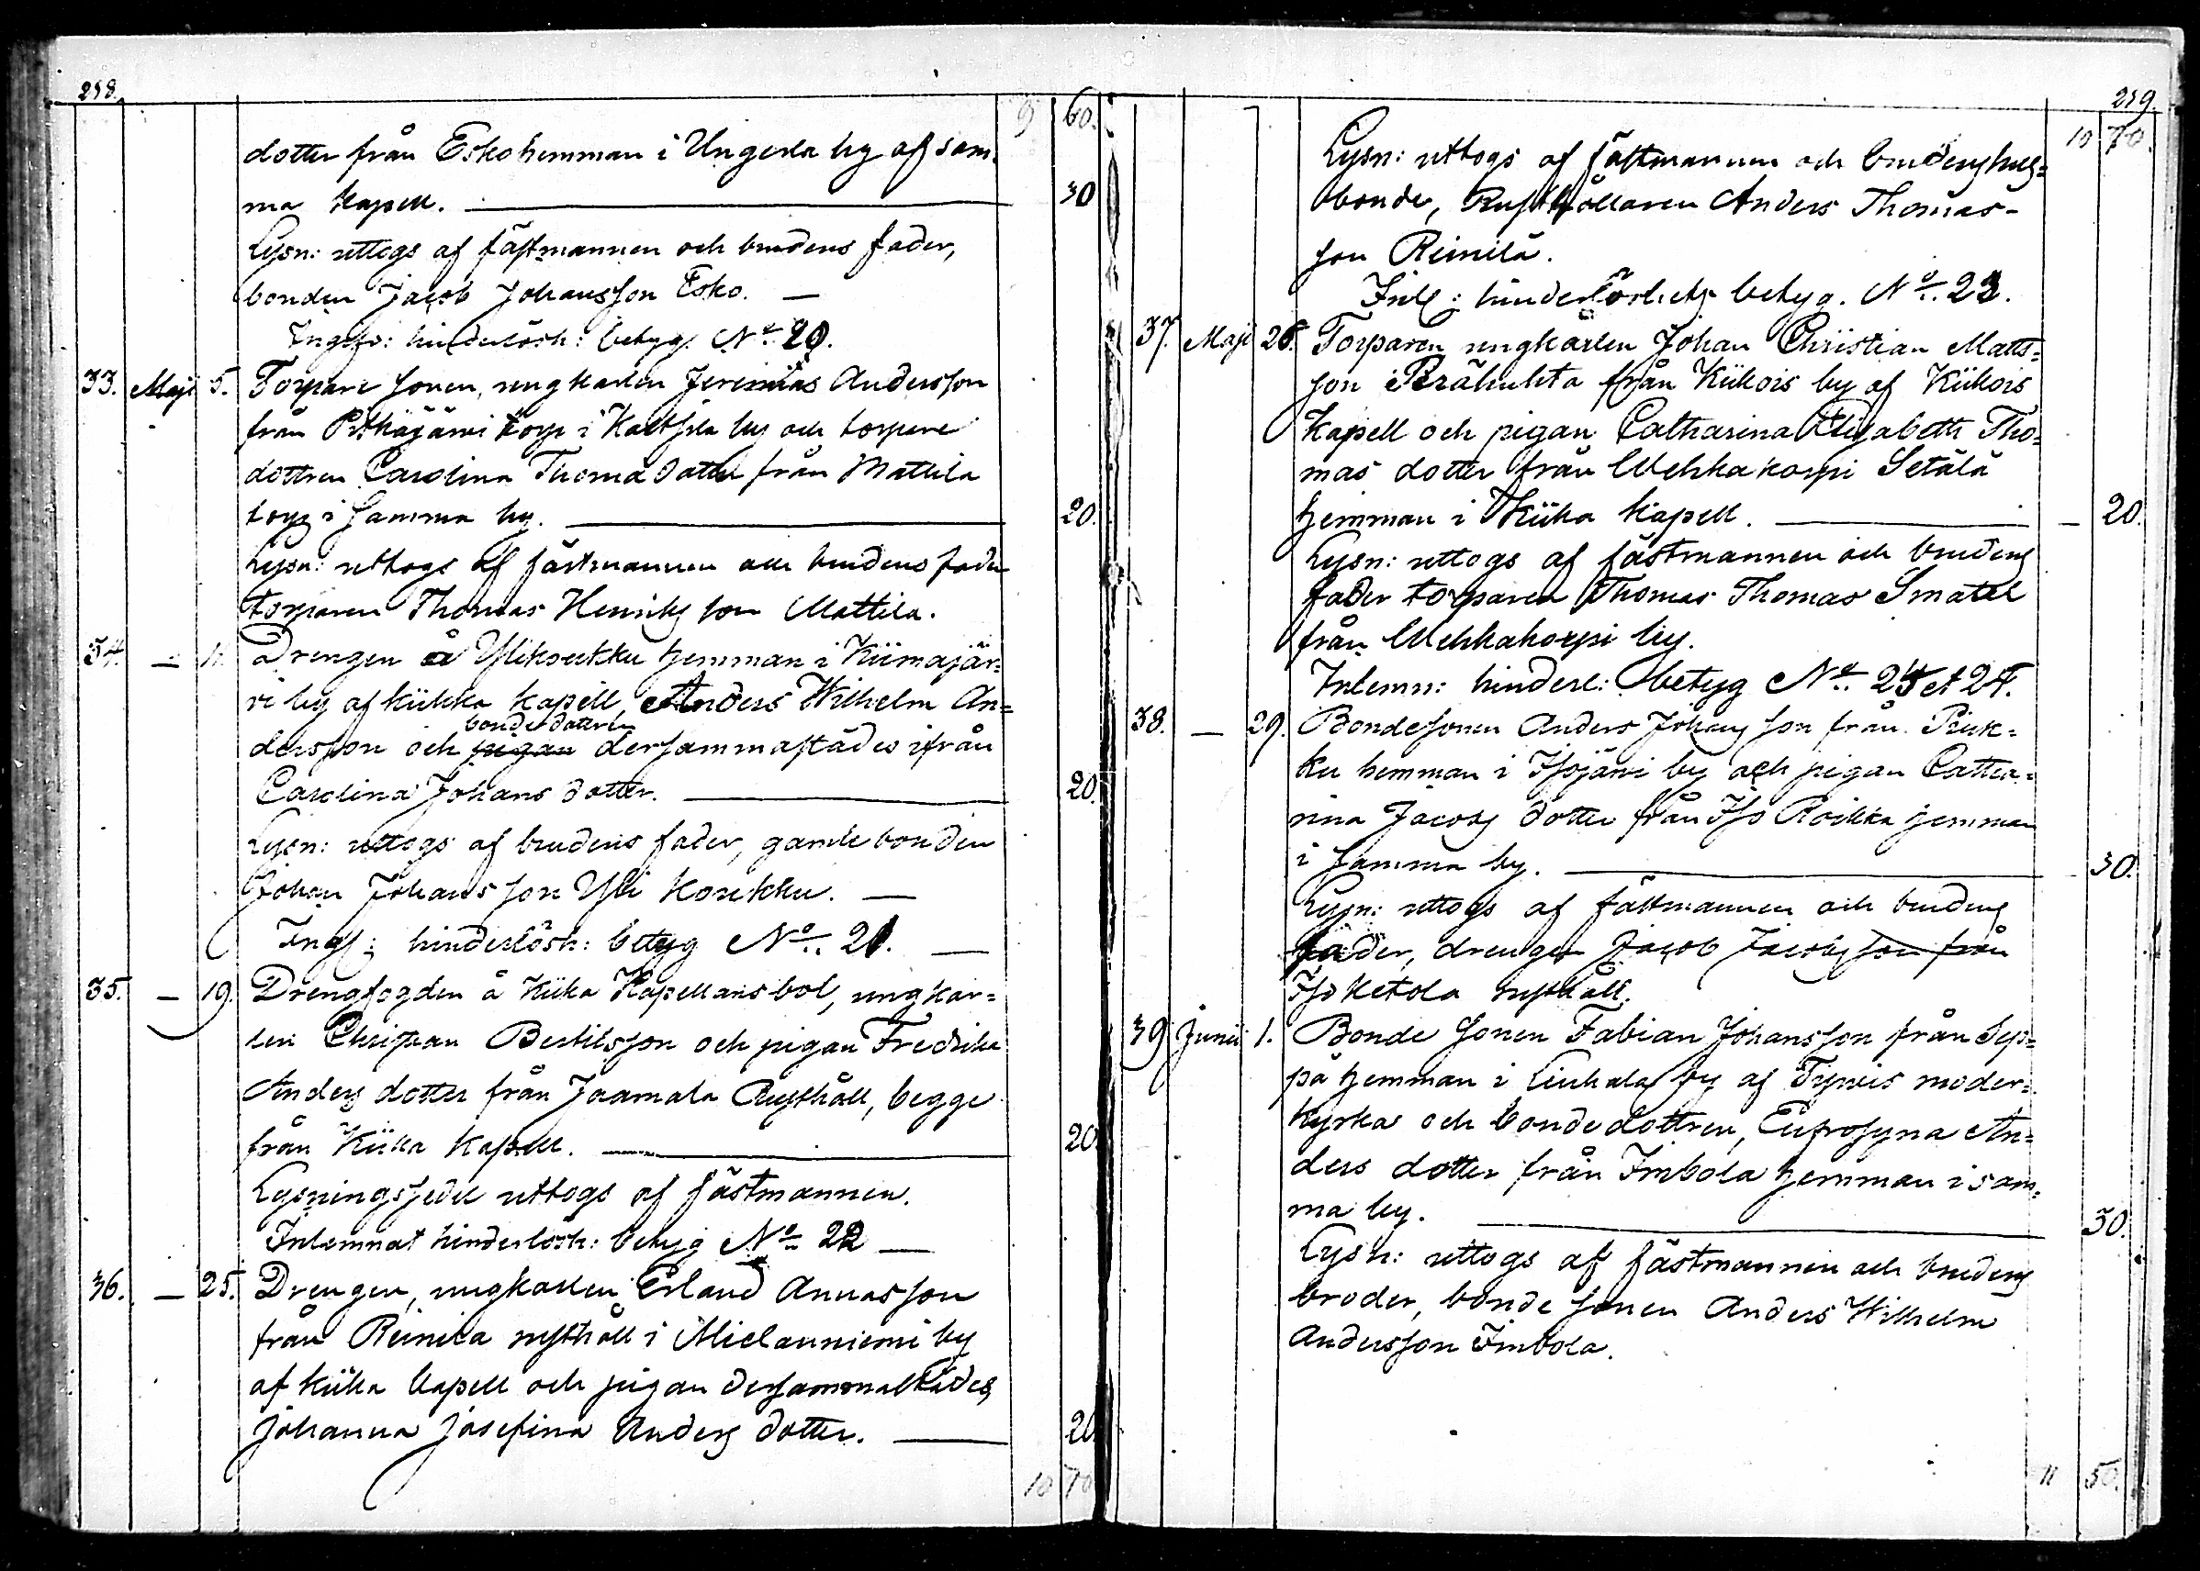 258.
9 60.
dotter från Esko hemman i Ungerla by af sam-
ma Kapell. 30
Lysn: uttogs af fästmannen och brudens fader,
bonden Jacob Johansson Esko. —
Ingifv: hinderlösh: betyg. No. 20.
33. Maji 5. Torpare sonen, ungkarlen Jeremias Andersson
från Pitkäjärvi torp i och torpare
dottren Carolina Thomas dotter från Mattila
torp i samma by. 20.
Lysn: uttogs af fästmannen och brudens fader
torparen Thomas Henriks son Mattila.
34. — Drengen å Ylikoukku hemman i Kiimajär-
vi by af Kiikka Kapell, Anders Wilhelm An-
bondedottren
dersson och pigan dersammastädes ifrån
Carolina Johans dotter. 20.
Lysn: uttogs af brudens fader, gamle bonden
Johan Johansson Yli Koukku. —
Ingf: hinderlösh: betyg No. 21. —
35. — 19. Drengfogden å Kiika Kapellansbol, ungkar-
len Christian Bertilsson och pigan Fredrika
Anders dotter från Jaamala Rusthåll, begge
från Kiika Kapell. 20.
Lysningssedel uttogs af fästmannen.
Inlemnat hinderlösh: betyg No. 22 —
36. — 25. Drengen, ungkarlen Erland Annasson
från Reinilä rusthåll i Mielauniemi by
af Kiika Kapell och pigan dersammastädes
Johanna Josefina Anders dotter. 20.
10 70
259.
10 70.
Lysn: uttogs af fästmannen och brudens hus-
bonde, Rusthållaren Anders Thomas-
son Reinilä.
Inl: hinderlöshets betyg. No. 23.
37. Maji 26. Torparen ungkarlen Johan Christian Matts-
son Perähuhta från Kiikois by af Kiikois
Kapell och pigan Catharina Elisabeth Tho-
mas dotter från Wehkakorpi Setälä
hemman i Kiika Kapell. — 20.
Lysn: uttogs af fästmannen och brudens
fader torparen Thomas Thomas Smatel
från Wehkakorpi by.
Inlemn: hinderl: betyg No. 24 et 25.
38. — 29. Bondesonen Anders Johansson från Piuk-
ku hemman i Isojärvi by och pigan Catha-
rina Jacobs dotter från Iso Roikka hemman
i samma by. 30.
Lysn: uttogs af fästmannen och brudens
fader, drengen Jacob Jacobsson från
Iso Ketola rusthåll.
39 Junii 1. Bonde sonen Fabian Johansson från Sep-
pä hemman i by af Tyrvis moder-
kyrka och bondedottren, Eufrosyna An-
ders dotter från Imbola hemman i sam-
ma by. 30.
Lysn: uttogs af fästmannen och brudens
broder, bonde sonen Anders Wilhelm
Andersson Imbola.
11 50.